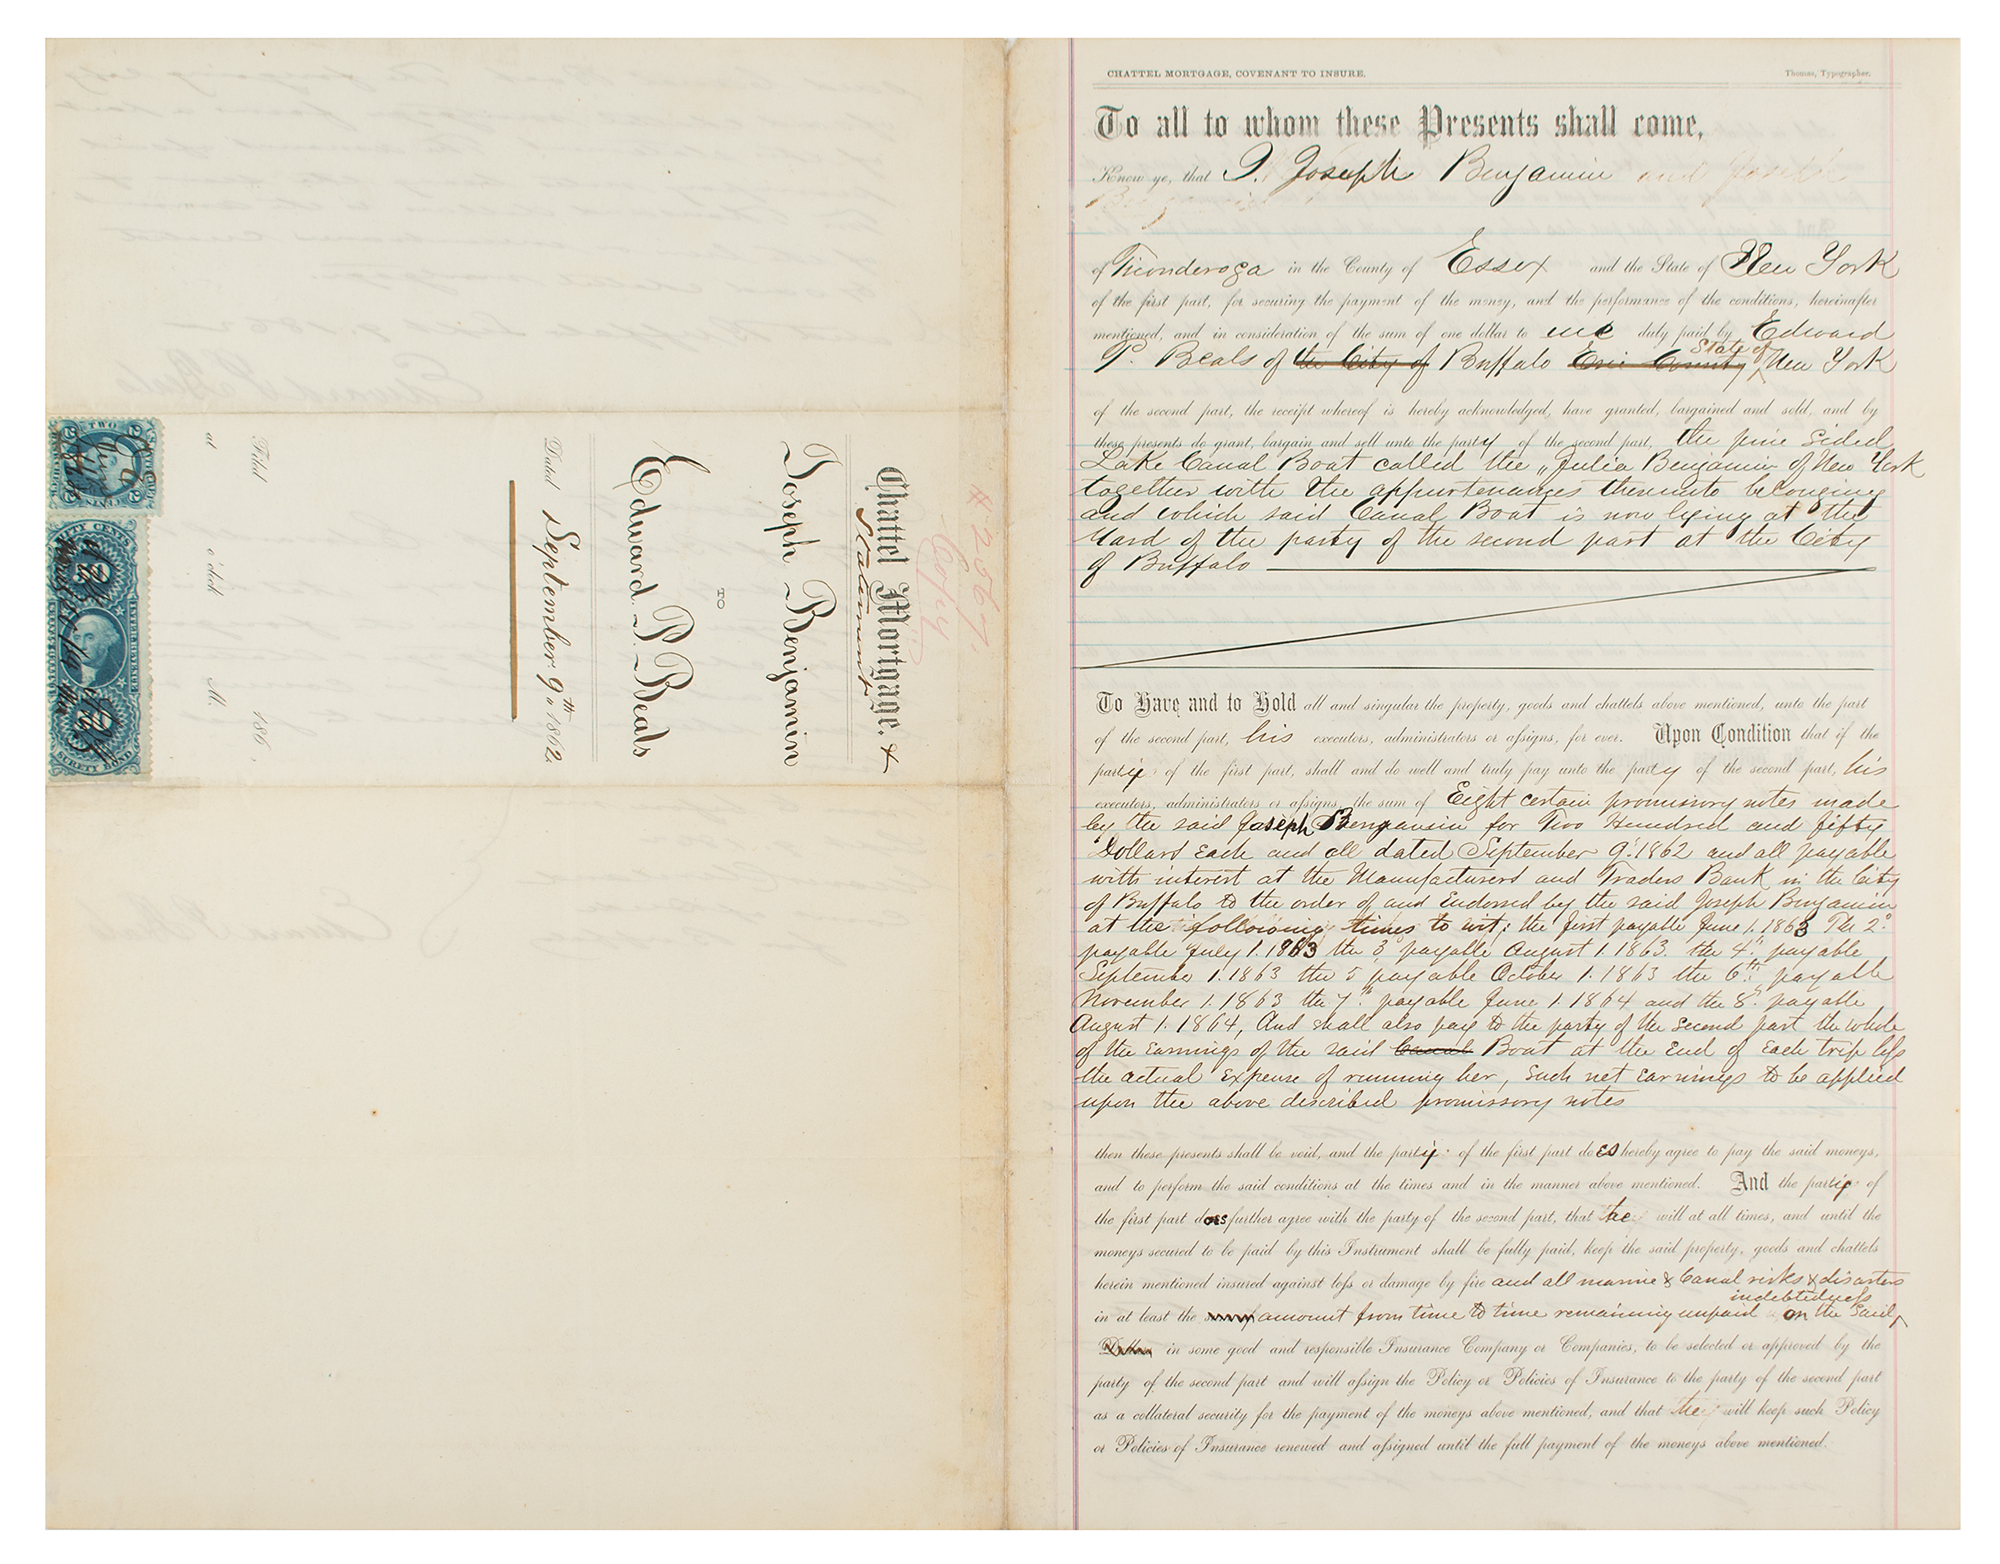 CHATTEL MORTGAGE, COVENANT TO INSURE.
Thomas, Typographer.
To all to whom these Presents shall come,
Know ye, that I. Joseph Benjamin and Joseph
Benjamin
of Ticonderoga in the County of Essex and the State of New York
of the first part, for securing the payment of the money, and the performance of the conditions, hereinafter
mentioned, and in consideration of the sum of one dollar to me duly paid by Edward
P. Beals of the City of Buffalo Erie County State of New York
of the second part, the receipt whereof is hereby acknowledged, have granted, bargained and sold, and by
these presents do grant, bargain and sell unto the party of the second part, the pine sided
Lake Canal Boat called the „Julia Benjamin of New York
together with the appurtenances thereunto belonging
and which said Canal Boat is now lying at the
Yard of the party of the second part at the City
of Buffalo
To Have and to Hold all and singular the property, goods and chattels above mentioned, unto the part
of the second part, his executors, administrators or assigns, for ever. Upon Condition that if the
party of the first part, shall and do well and truly pay unto the party of the second part, his
executors, administrators or assigns, the sum of Eight certain promissory notes made
by the said Joseph Benjamin for Two Hundred and fifty
Dollars Each and all dated September 9. 1862 and all payable
with interest at the Manufacturers and Traders Bank in the City
of Buffalo to the order of and Endorsed by the said Joseph Benjamin
at the following times to wit; the first payable June 1. 1863 The 2d
payable July 1. 1863 the 3 payable August 1. 1863. the 4th payable
September 1. 1863 the 5 payable October 1. 1863 the 6th payable
November 1. 1863 the 7th payable June 1. 1864 and the 8. payable
August 1. 1864, And shall also pay to the party of the second part the whole
of the Earnings of the said Canal Boat at the End of Each trip less
the actual Expense of running her, Such net Earnings to be applied
upon the above described promissory notes
then these presents shall be void, and the party of the first part does hereby agree to pay the said moneys,
and to perform the said conditions at the times and in the manner above mentioned. And the party of
the first part does further agree with the party of the second part, that he will at all times, and until the
moneys secured to be paid by this Instrument shall be fully paid, keep the said property, goods and chattels
herein mentioned insured against loss or damage by fire and all marine & Canal risks & disasters
indebtedness
in at least the amount from time to time remaining unpaid on the Said
in some good and responsible Insurance Company or Companies, to be selected or approved by the
party of the second part and will assign the Policy or Policies of Insurance to the party of the second part
as a collateral security for the payment of the moneys above mentioned, and that he will keep such Policy
or Policies of Insurance renewed and assigned until the full payment of the moneys above mentioned.
# 2567.
Copy
Chattel Mortgage. &
Statement
Joseph Benjamin
TO
Edward. P. Beals
Dated September 9th 1862
Filed 186 .
at o'clock M.
TWO
2
2
CENTS
FIFTY CENTS
INTER. REVENUE
SURETY BOND